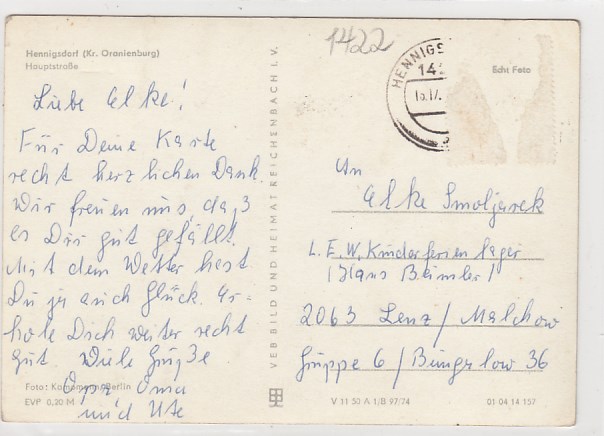 1422
Hennigsdorf (Kr. Oranienburg)
Hauptstraße
Liebe Elke!
Für Deine Karte
recht herzlichen Dank.
Wir freuen uns, daß
es Dir gut gefällt.
Mit dem Wetter hast
Du ja auch Glück. Er-
hole Dich weiter recht
gut. Viele Grüße
Opa Oma
und Ute
Foto: Kampmann, Berlin
EVP 0,20 M
VEB BILD UND HEIMAT REICHENBACH I. V.
HENNIGS
142
Echt Foto
An
Elke Smoljarek
L.E.W. Kinderferienlager
(Hans Beimler)
2063 Lenz / Malchow
Gruppe 6 / Bungalow 36
V 11 50 A 1/B 97/74
01 04 14 157